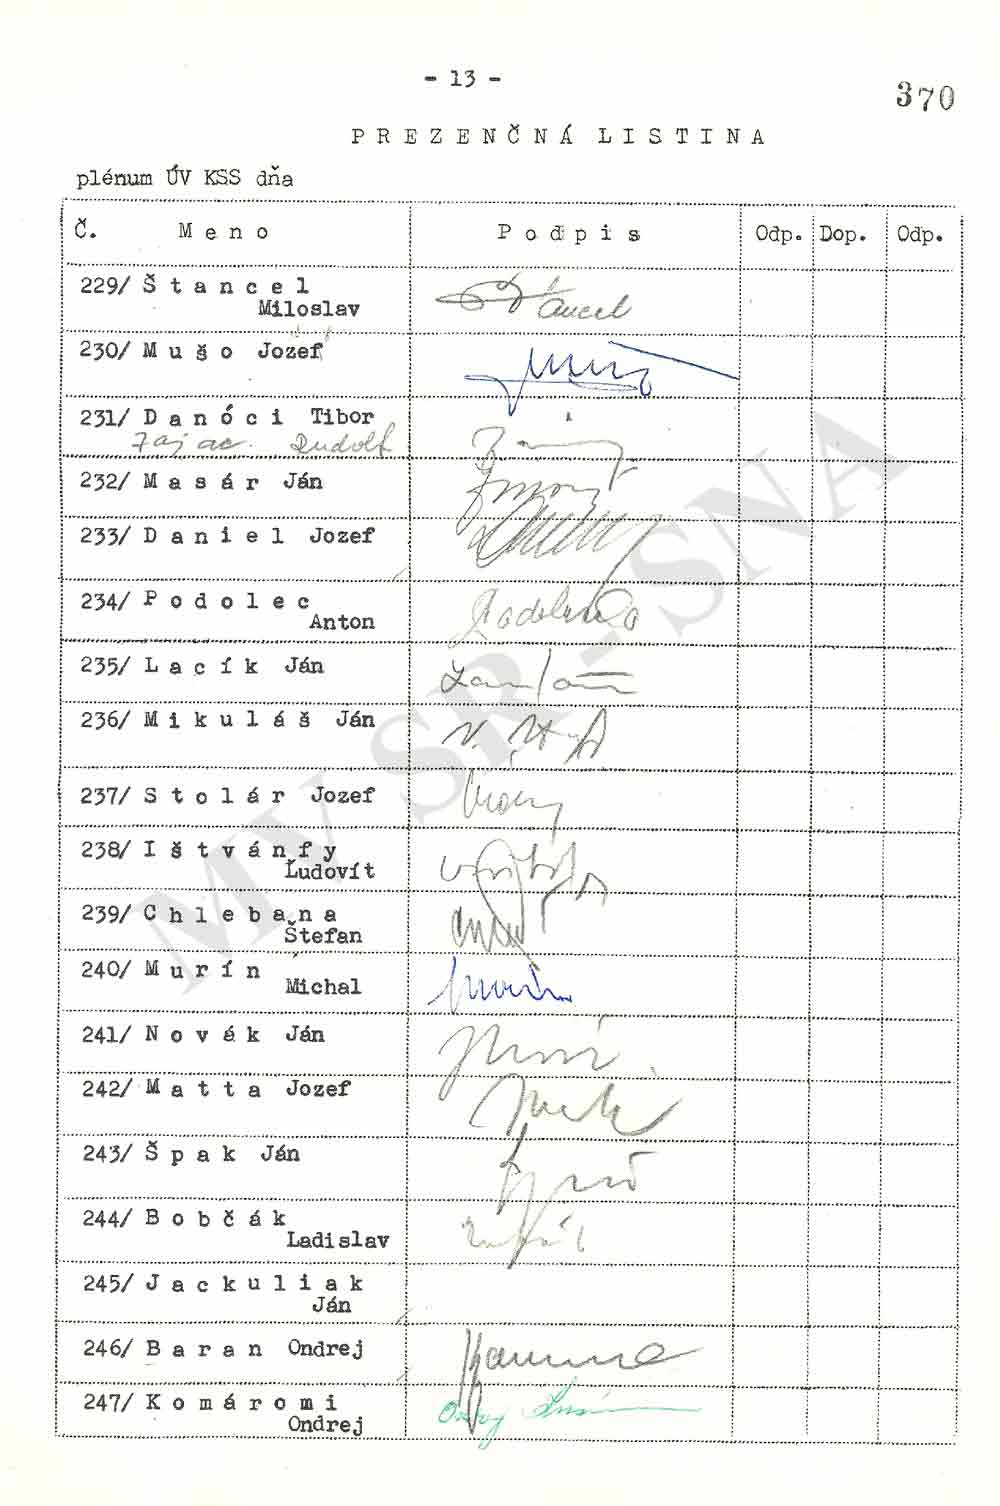 - 13 -
370
PREZENČNÁ LISTINA
plénum ÚV KSS dňa
Č. Meno Podpis Odp. Dop. Odp.
229/ Štancel
Miloslav
230/ Mušo Jozef
231/ Danóci Tibor
Zajac. Rudolf
232/ Masár Ján
233/ Daniel Jozef
234/ Podolec
Anton
235/ Lacík Ján
236/ Mikuláš Ján
237/ Stolár Jozef
238/ Ištvánfy
Ľudovít
239/ Chlebana
Štefan
240/ Murín
Michal
241/ Novák Ján
242/ Matta Jozef
243/ Špak Ján
244/ Bobčák
Ladislav
245/ Jackuliak
Ján
246/ Baran Ondrej
247/ Komáromi
Ondrej
MV SR - SNA